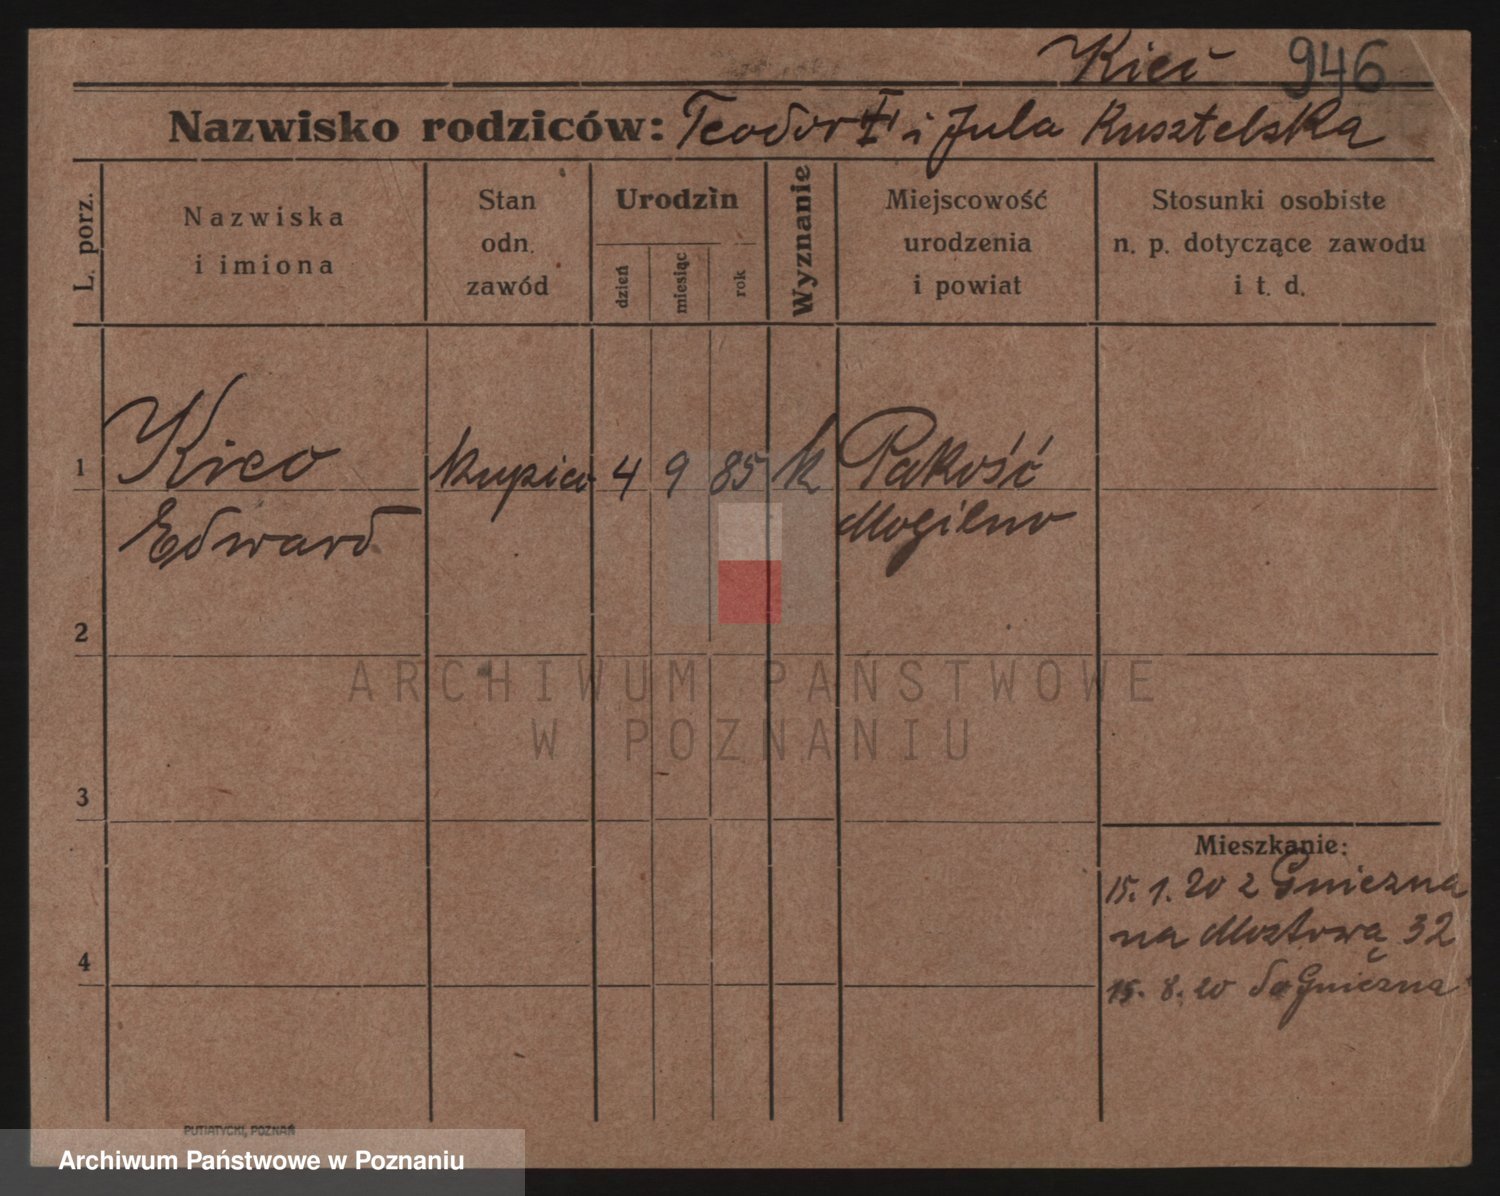 Kieć 946
Nazwisko rodziców: Teodor i Jula Rusztelska
L. porz.
Nazwiska
i imiona
Stan
odn.
zawód
Urodzin
dzień
miesiąc
rok
Wyznanie
Miejscowość
urodzenia
i powiat
Stosunki osobiste
n. p. dotyczące zawodu
i t. d.
1 Kieć kupiec 4 9 85 k Pakość
Edward Mogilno
2
3
4
ARCHIWUM PAŃSTWOWE
W POZNANIU
Mieszkanie:
15. 1. 20 z Gniezna
na Mostową 32
15. 8. 20 do Gniezna
PUTIATYCKI, POZNAŃ
Archiwum Państwowe w Poznaniu